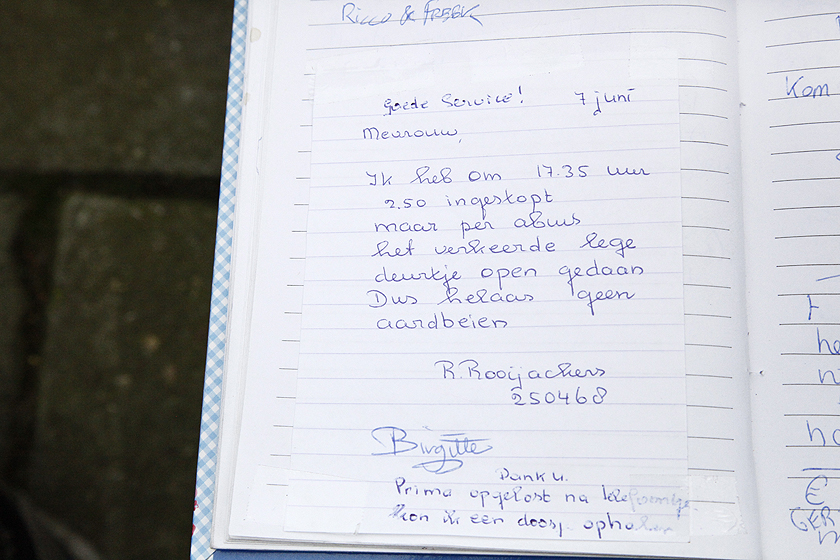 Ricco & FREEK
Goede Service! 7 juni
Mevrouw,
Ik heb om 17.35 uur
2.50 ingestopt
maar per abuis
het verkeerde lege
deurtje open gedaan
Dus helaas geen
aardbeien
R. Rooijackers
250468
Birgitte
Dank u.
Prima opgelost na
kon ik een doosj. ophalen
Kom
€